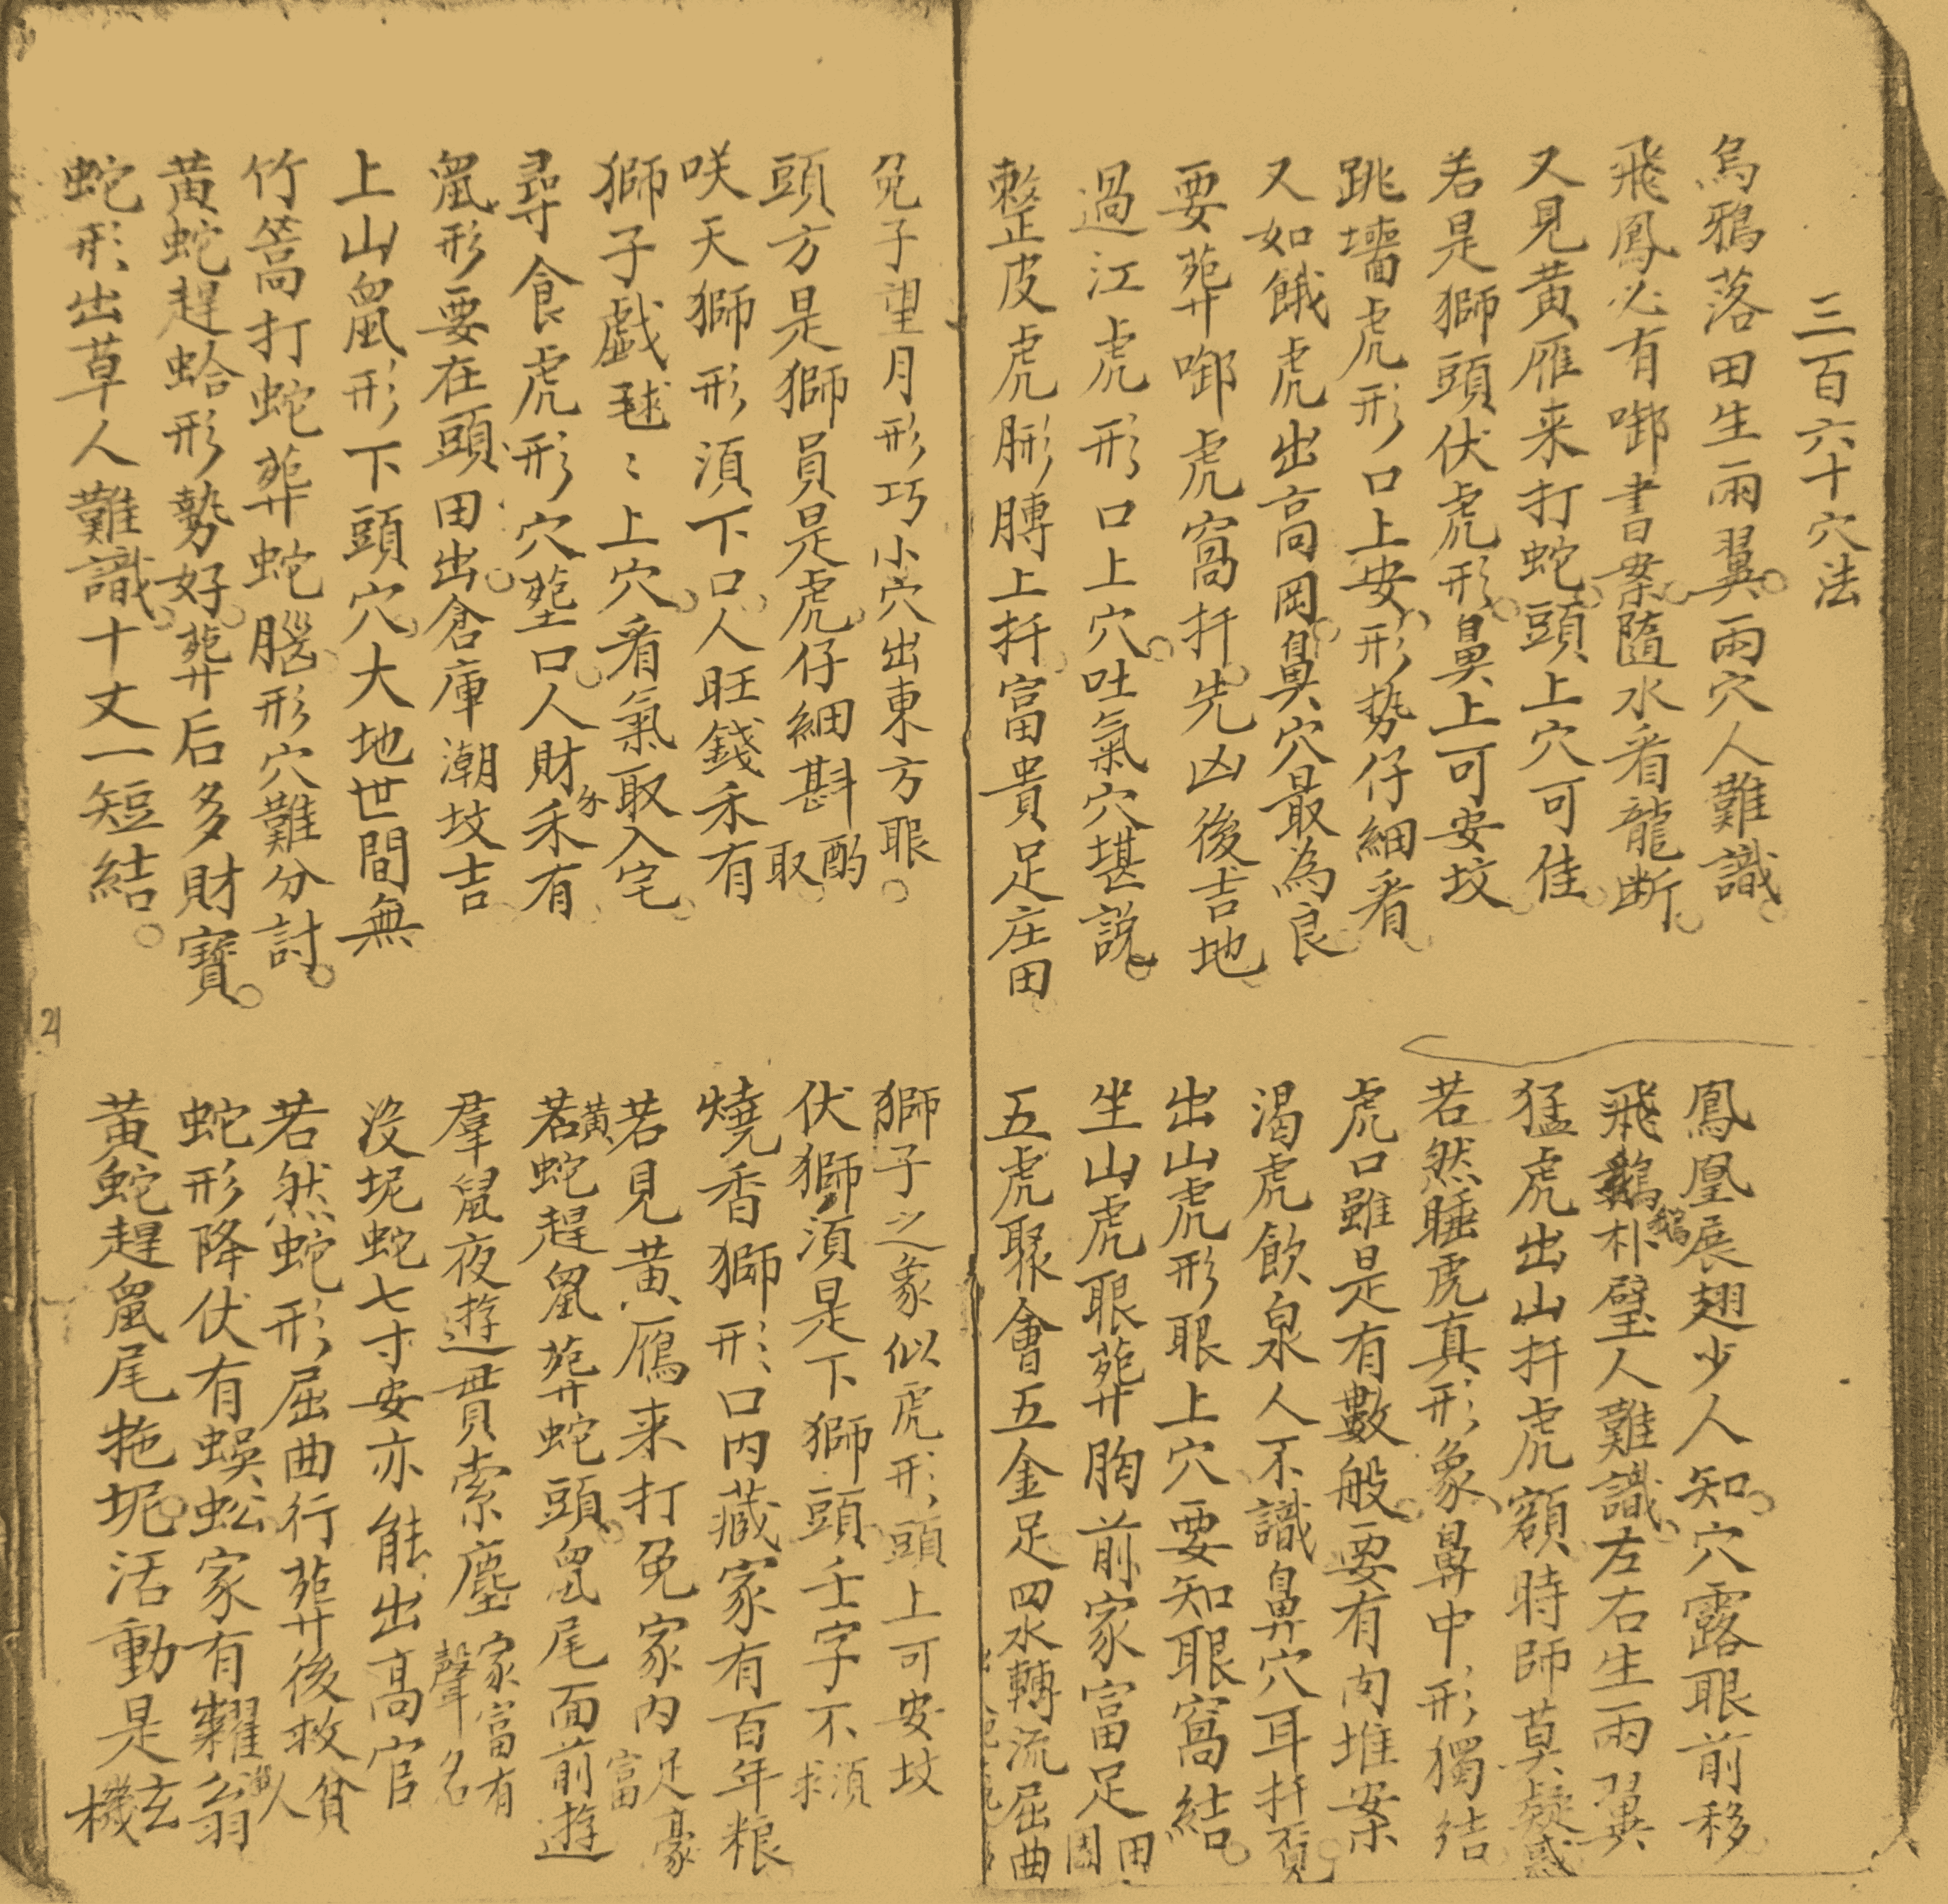 三百六十穴法
烏鴉落田生兩翼兩穴人難識
鳳凰展翅少人知穴露眼前移
飛鳳必有啣書案隨水看龍断
飛鵝朴壁人難識左右生兩翼
鵝
又見黃雁来打蛇頭上穴可佳
猛虎出山扦虎額時師莫疑惑
若是獅頭伏虎形鼻上可安坟
若然睡虎真形象鼻中形獨结
跳墻虎形口上安形势仔細看
虎口雖是有數般要有內堆案
又如餓虎出高岡鼻穴最為良
渴虎飲泉人不識鼻穴耳扦
要葬啣虎窩扦先凶後吉地
出山虎形眼上穴要知眼窩結
過江虎形口上穴吐氣穴堪説
坐山虎眼葬胸前家富足田園
整皮虎形膊上扦富貴足庄田
五虎聚會五金足四水轉流屈曲
兔子望月形巧小穴出東方眼
獅子之象似虎形頭上可安坟
頭方是獅員是虎仔細斟酌取
伏獅湏是下獅頭壬字不湏求
咲天獅形湏下口人旺錢禾有
燒香獅形口內藏家有百年粮
獅子戲毬〻上穴看氣取入宅
若見黃鴈来打兔家內足豪富
尋食虎形穴塟口人財禾有
黃
若蛇趕鼠葬蛇頭鼠尾面前遊
鼠形要在頭田出倉庫潮坟吉
羣鼠夜遊貫索塵家富有聲名
上山鼠形下頭穴大地世間無
沒坭蛇七寸安亦能出高官
竹篙打蛇葬蛇腦形穴難分討
若然蛇形屈曲行葬後救貧人
黃蛇趕蛤形勢好葬后多財寶
蛇形降伏有蜈蚣家有糶翁
蛇形出草人難識十丈一短結
黃蛇趕鼠尾拖坭活動是玄機
21